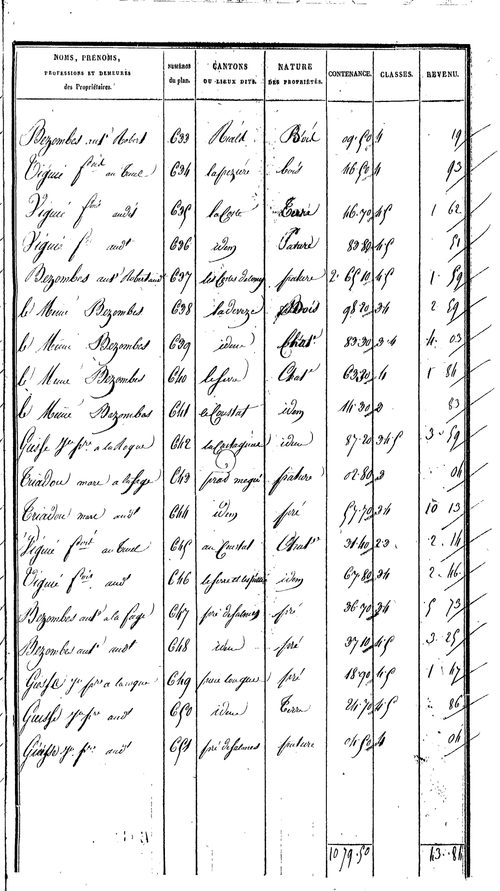 NOMS, PRÉNOMS, PROFESSIONS ET DEMEURES des Propriétaires. NUMÉROS du plan. CANTONS OU LIEUX DITS. NATURE DES PROPRIÉTÉS. CONTENANCE. CLASSES. REVENU.
Bezombes ant. Robert 633 Bois 09·50 4 19
Viguié fçois au Truel 634 lapezière bois 46·50 4 93
Viguié fçois audt 635 la Coste Terre 46·70 45 1 62
Viguié f. audt 636 idem Pature 83·80 45 51
Bezombes ant. 637 pature 2·65 10 45 1·59
le Meme Bezombes 638 la deveze Bois 98 20 34 2 59
le Meme Bezombes 639 idem Chat. 83·30 3·4 4·03
le Meme Bezombes 640 le serre Chat. 63·30 4 1 84
le Meme Bezombes 641 le Coustat idem 14·30 2 83
Gaisse Jn. pre a la Roque 642 idem 87·20 345 3·59
Triadou marc a la fage 643 prad megié pature 02·80 3 04
Triadou marc audt 644 idem pré 57·70 34 10 13
Viguié fçois au Truel 645 au Coustat Chat. 31·40 23 2·14
Viguié fçois audt 646 idem 67·80 34 2·46
Bezombes ant. a la fage 647 pré de salmes pré 36·70 34 5 73
Bezombes ant. audt 648 idem pré 37 10 45 3·25
Gaisse Jn. pre a la roque 649 longue pré 18·90 45 1 47
Gaisse Jn. pre audt 650 idem Terre 24·70 45 86
Gaisse Jn. pre audt 651 pré de salmes pature 04·50 4 04
10 79·50 43··84